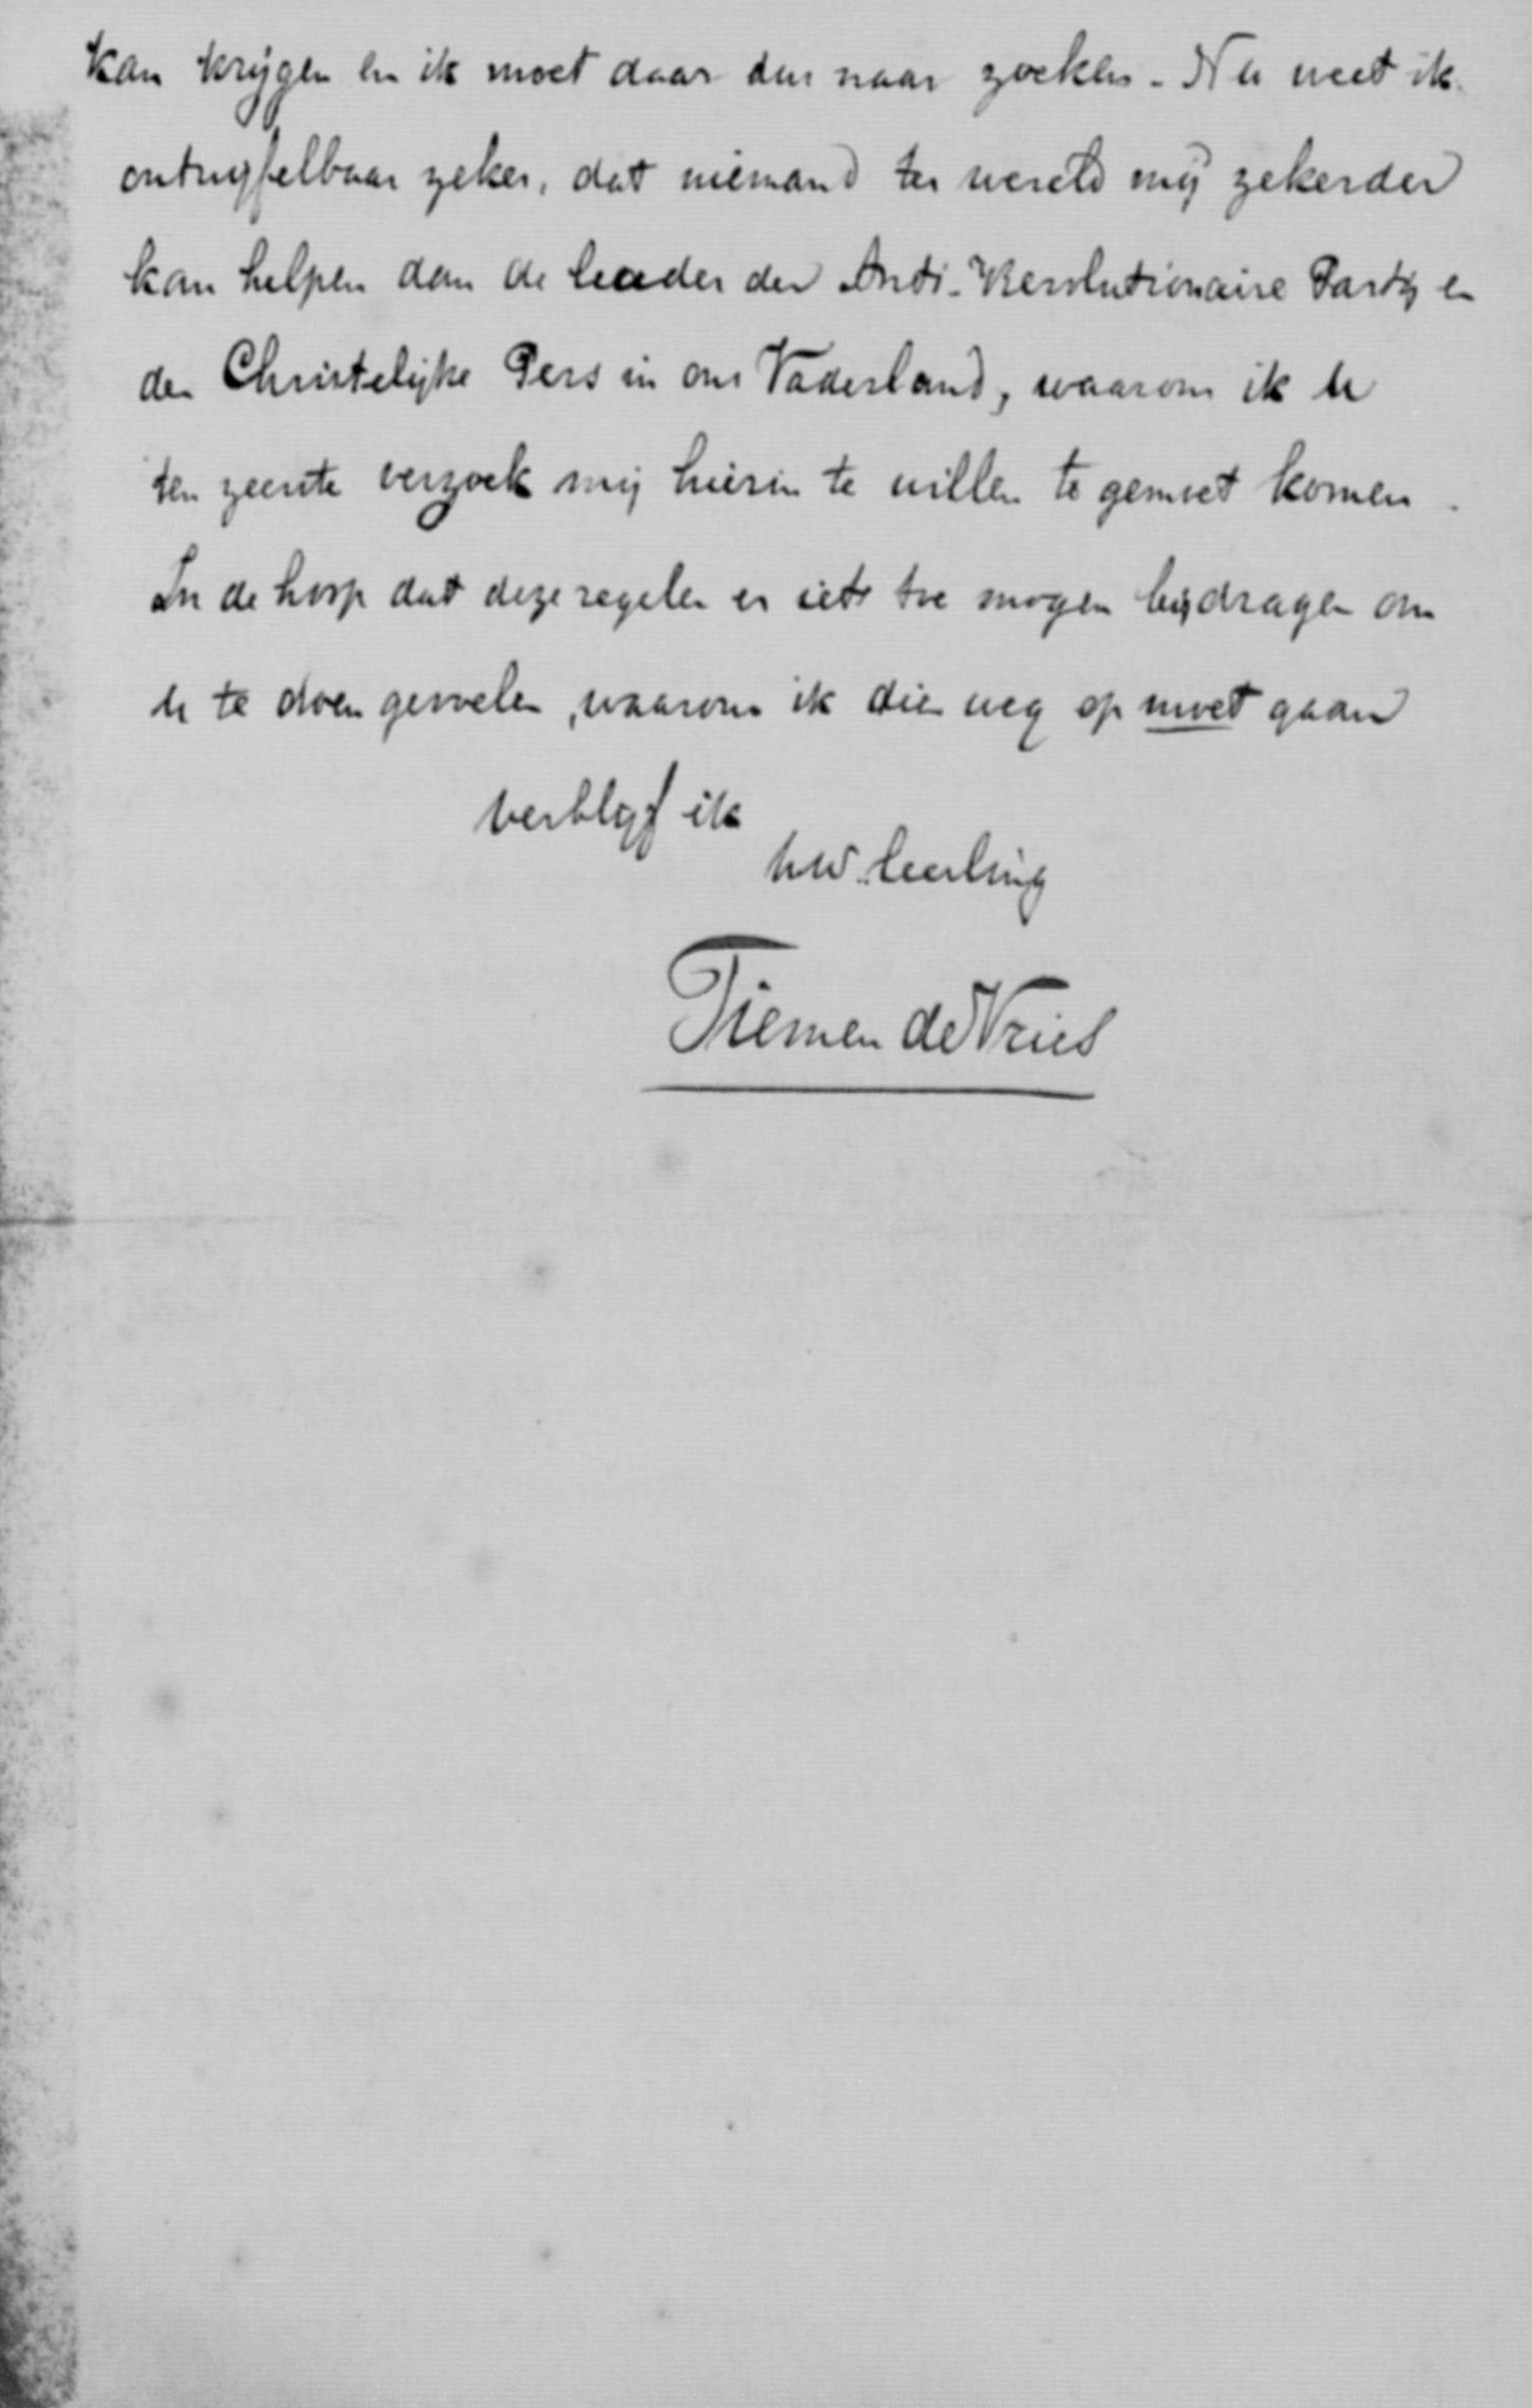 kan krijgen en ik moet daar dus naar zoeken - Nu weet ik
ontwijfelbaar zeker, dat niemand ter wereld mij zekerder
kan helpen dan de leader der Anti-Revolutionaire Partij en
der Christelijke Pers in ons Vaderland, waarom ik U
ten zeerste verzoek mij hierin te willen te gemoet komen.
In de hoop dat deze regelen er iets toe mogen bijdragen om
U te doen gevoelen, waarom ik die weg op moet gaan
verblijf ik
Uw leerling
Tiemen de Vries